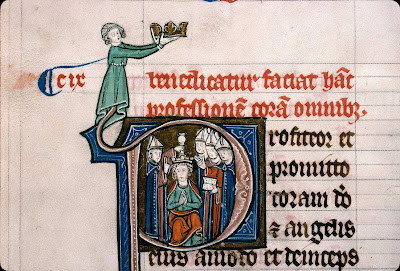 benedicatur faciat hāc
professionē corā omnibꝫ.
Profiteor et
promitto
coram dō
⁊ angelis
eius amodo et deinceps